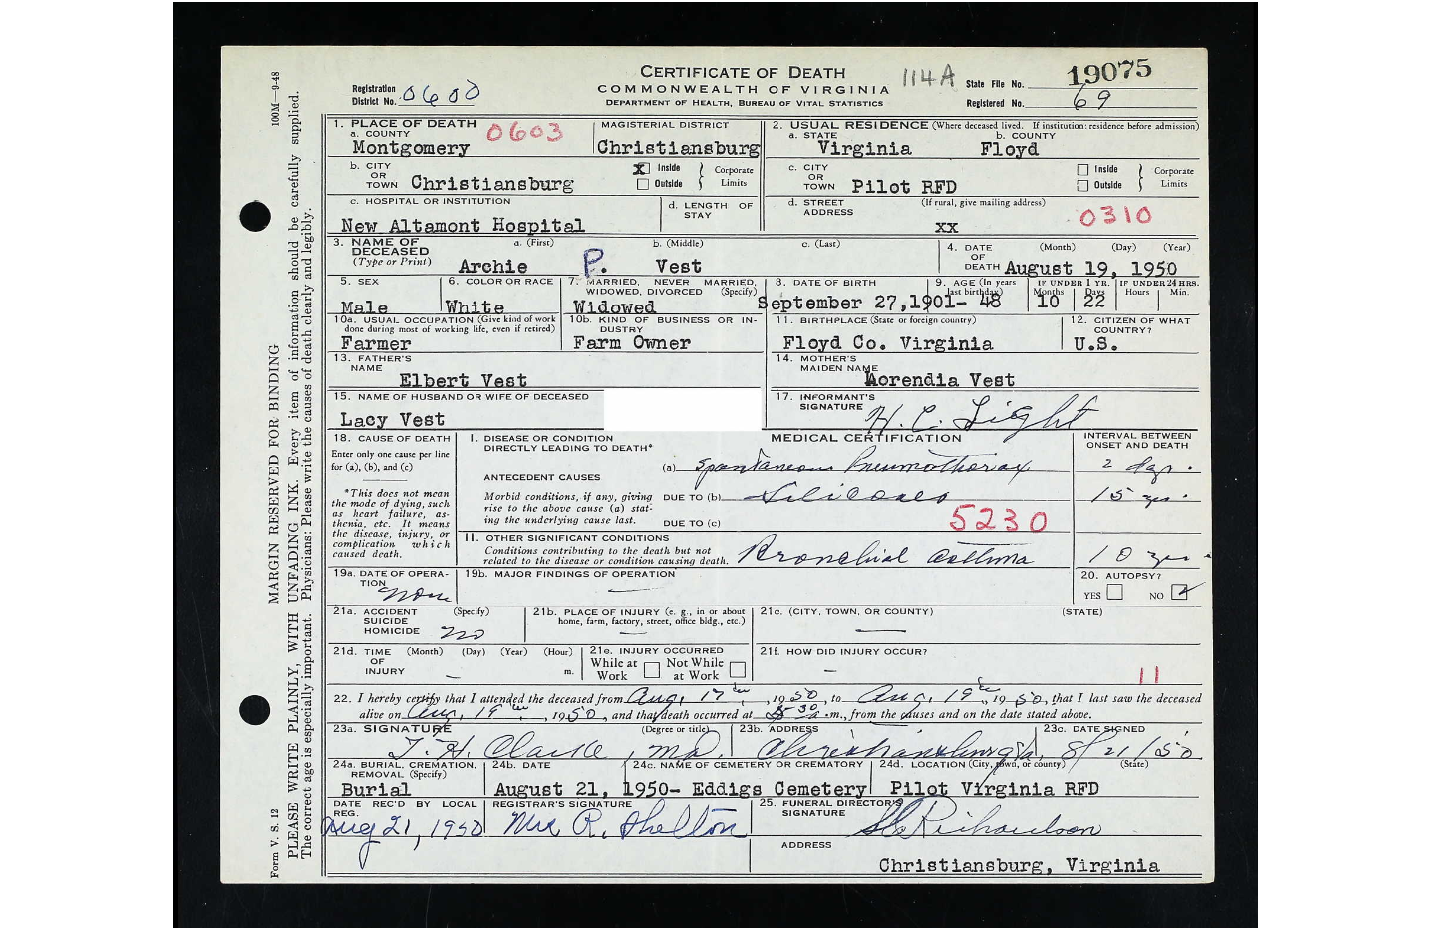 CERTIFICATE OF DEATH
COMMONWEALTH OF VIRGINIA
DEPARTMENT OF HEALTH, BUREAU OF VITAL STATISTICS
114A
Registration District No. 0600
State File No. 19075
Registered No. 69
100M—9-48
MARGIN RESERVED FOR BINDING
PLEASE WRITE PLAINLY, WITH UNFADING INK. Every item of information should be carefully supplied.
The correct age is especially important. Physicians: Please write the causes of death clearly and legibly.
Form V. S. 12
1. PLACE OF DEATH
a. COUNTY 0603
Montgomery
MAGISTERIAL DISTRICT
Christiansburg
2. USUAL RESIDENCE (Where deceased lived. If institution: residence before admission)
a. STATE b. COUNTY
Virginia Floyd
b. CITY OR TOWN Christiansburg
X Inside Outside Corporate Limits
c. CITY OR TOWN Pilot RFD
Inside Outside Corporate Limits
c. HOSPITAL OR INSTITUTION
New Altamont Hospital
d. LENGTH OF STAY
d. STREET ADDRESS (If rural, give mailing address)
xx 0310
3. NAME OF DECEASED (Type or Print)
a. (First) b. (Middle) c. (Last)
Archie P. Vest
4. DATE OF DEATH (Month) (Day) (Year)
August 19, 1950
5. SEX
Male
6. COLOR OR RACE
White
7. MARRIED, NEVER MARRIED, WIDOWED, DIVORCED (Specify)
Widowed
3. DATE OF BIRTH
September 27,1901-
9. AGE (In years last birthday)
48
IF UNDER 1 YR. Months Days
10 22
IF UNDER 24 HRS. Hours Min.
10a. USUAL OCCUPATION (Give kind of work done during most of working life, even if retired)
Farmer
10b. KIND OF BUSINESS OR INDUSTRY
Farm Owner
11. BIRTHPLACE (State or foreign country)
Floyd Co. Virginia
12. CITIZEN OF WHAT COUNTRY?
U.S.
13. FATHER'S NAME
Elbert Vest
14. MOTHER'S MAIDEN NAME
Aorendia Vest
15. NAME OF HUSBAND OR WIFE OF DECEASED
Lacy Vest
17. INFORMANT'S SIGNATURE H. C. Light
18. CAUSE OF DEATH
Enter only one cause per line for (a), (b), and (c)
*This does not mean the mode of dying, such as heart failure, asthenia, etc. It means the disease, injury, or complication which caused death.
MEDICAL CERTIFICATION
INTERVAL BETWEEN ONSET AND DEATH
I. DISEASE OR CONDITION DIRECTLY LEADING TO DEATH*
(a) Spontaneous Pneumothorax 2 days.
ANTECEDENT CAUSES
Morbid conditions, if any, giving rise to the above cause (a) stating the underlying cause last.
DUE TO (b) Silicosis 15 yrs.
DUE TO (c) 5230
II. OTHER SIGNIFICANT CONDITIONS
Conditions contributing to the death but not related to the disease or condition causing death.
Bronchial asthma 10 yrs.
19a. DATE OF OPERATION
None
19b. MAJOR FINDINGS OF OPERATION
—
20. AUTOPSY?
YES NO
21a. ACCIDENT SUICIDE HOMICIDE (Specify)
no
21b. PLACE OF INJURY (e. g., in or about home, farm, factory, street, office bldg., etc.)
—
21c. (CITY, TOWN, OR COUNTY) (STATE)
—
21d. TIME OF INJURY (Month) (Day) (Year) (Hour) m.
—
21e. INJURY OCCURRED
While at Work Not While at Work
21f. HOW DID INJURY OCCUR?
—
11
22. I hereby certify that I attended the deceased from Aug, 17th, 1950, to Aug, 19th, 1950, that I last saw the deceased
alive on Aug, 19th, 1950, and that death occurred at 5:30 a.m., from the causes and on the date stated above.
23a. SIGNATURE (Degree or title)
T. H. Clarke, MD.
23b. ADDRESS
Christiansburg Va,
23c. DATE SIGNED
8/21/50
24a. BURIAL, CREMATION, REMOVAL (Specify)
Burial
24b. DATE
August 21, 1950-
24c. NAME OF CEMETERY OR CREMATORY
Eddigs Cemetery
24d. LOCATION (City, town, or county) (State)
Pilot Virginia RFD
DATE REC'D BY LOCAL REG.
Aug 21, 1950
REGISTRAR'S SIGNATURE
Mrs R. Shelton
25. FUNERAL DIRECTOR'S SIGNATURE
Richardson
ADDRESS
Christiansburg, Virginia